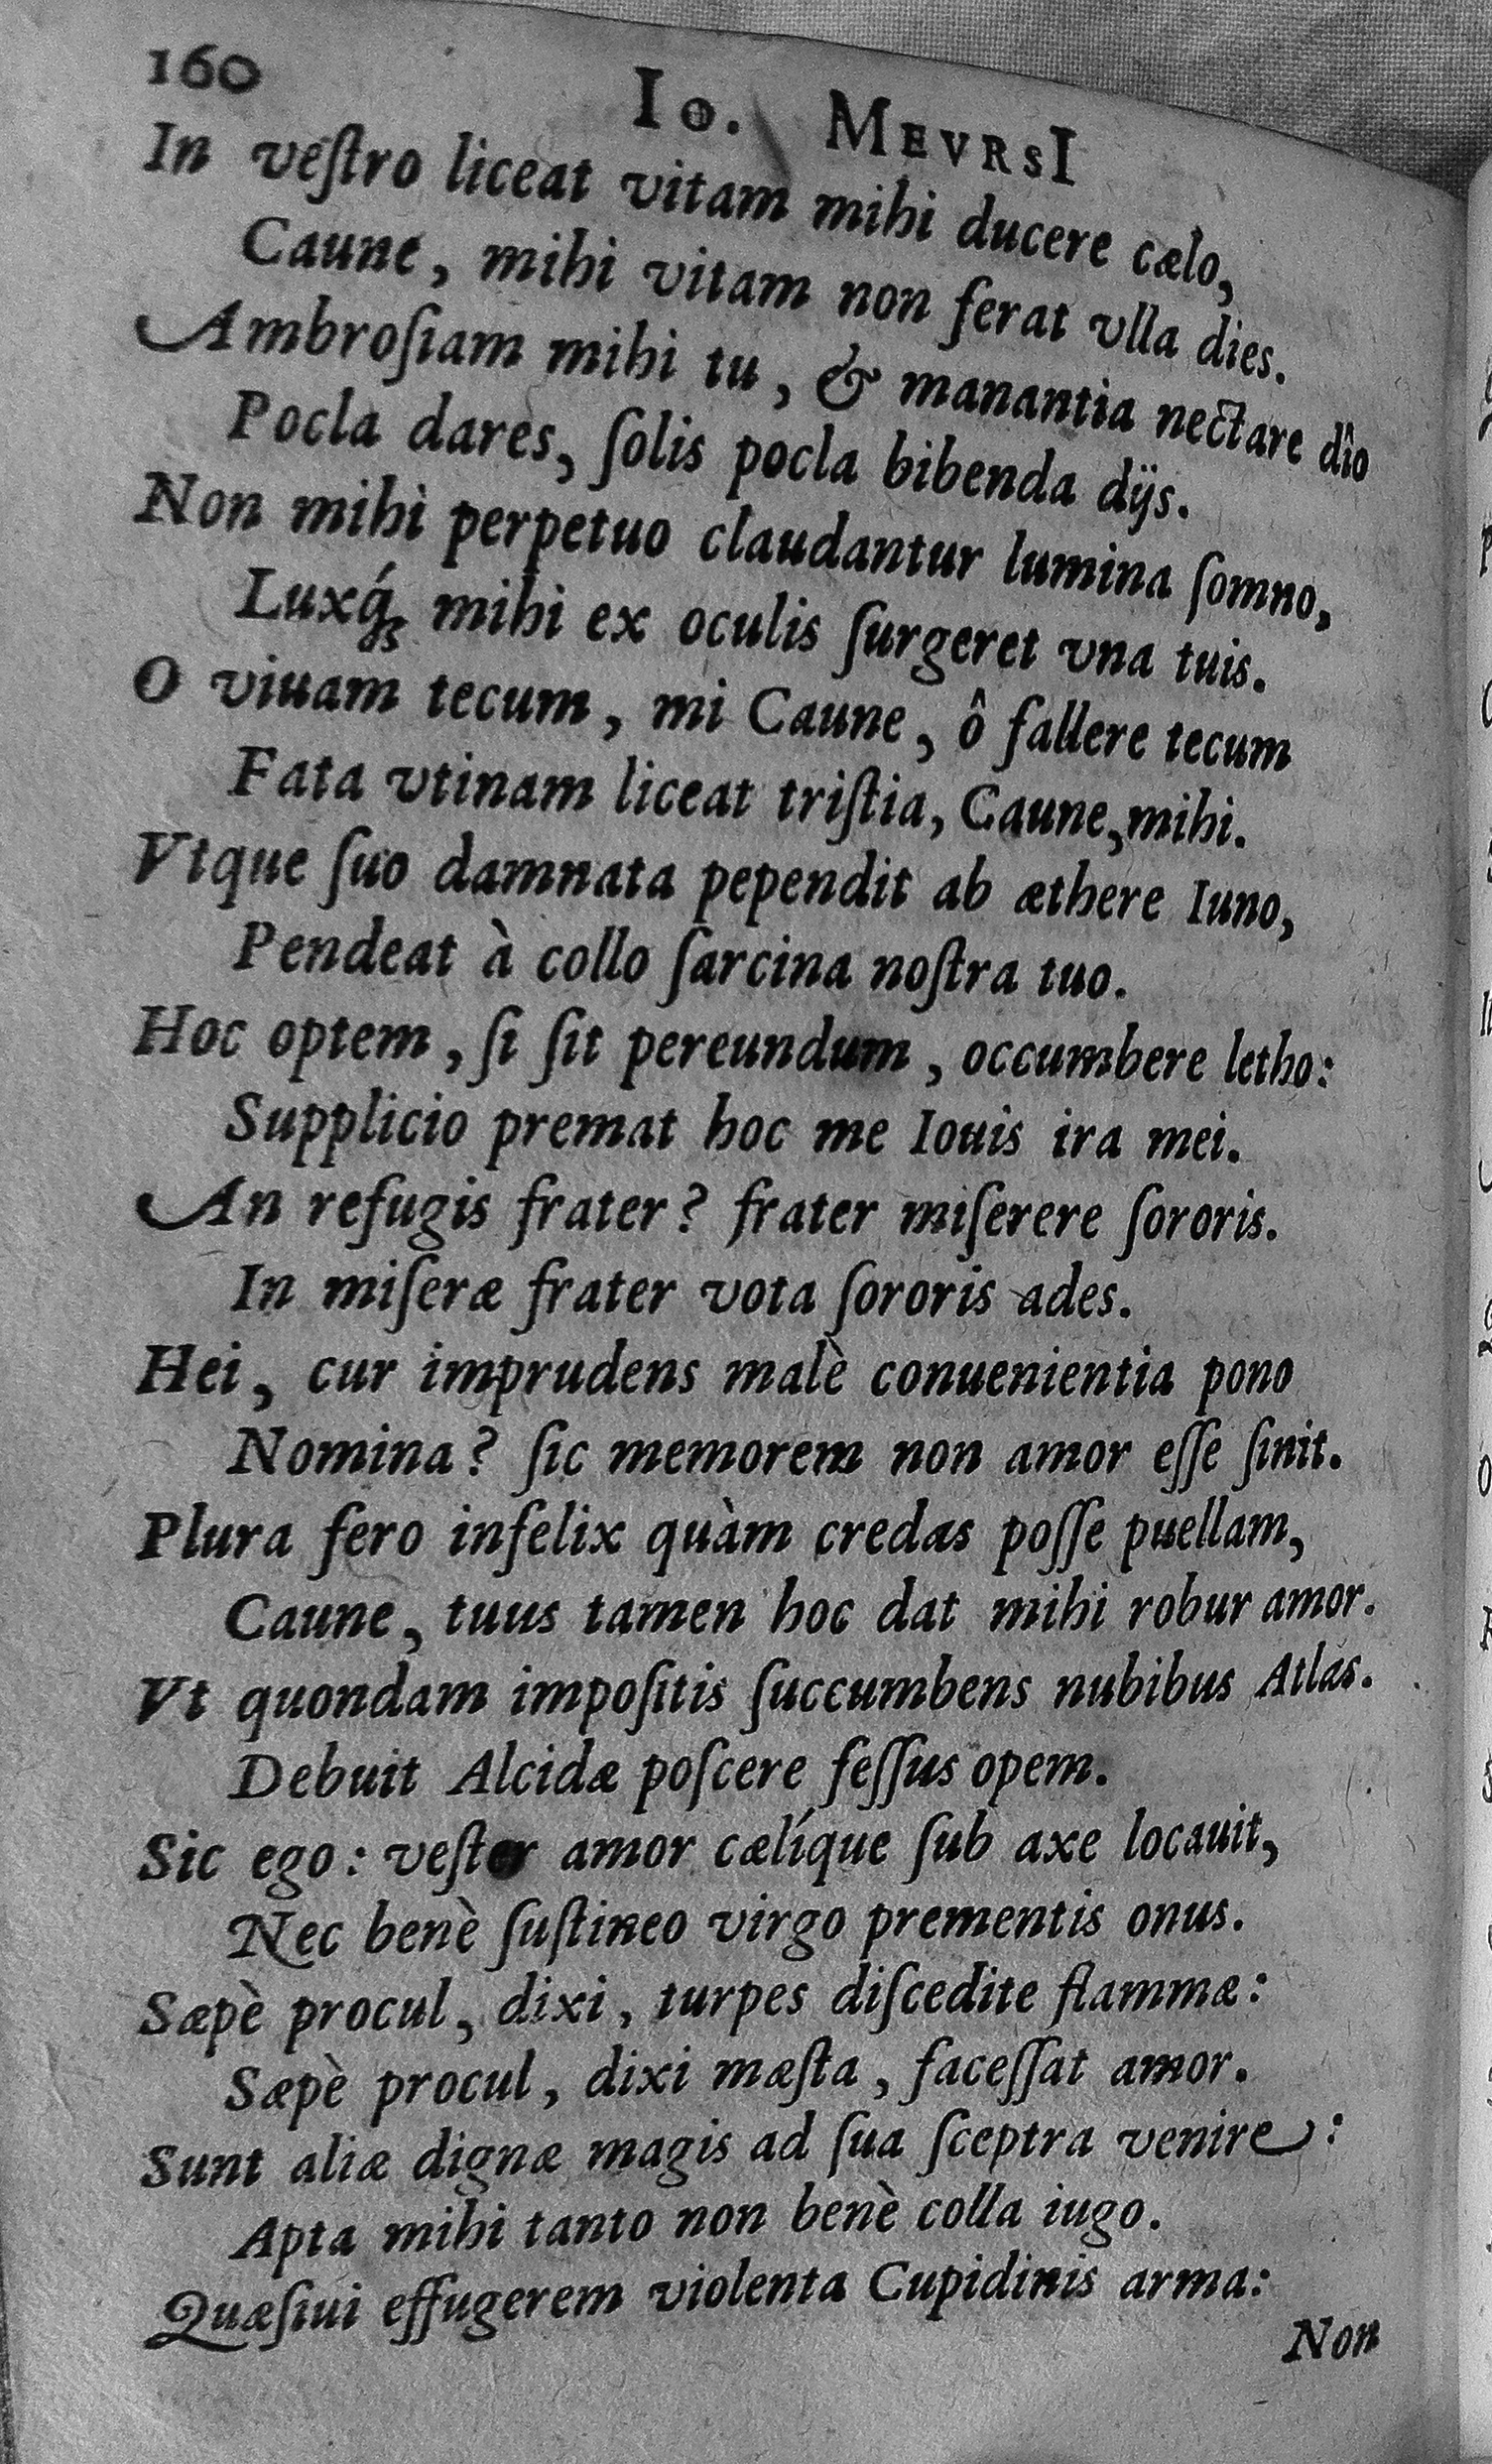 160
Io. MEVRSI
In veſtro liceat vitam mihi ducere cælo,
Caune, mihi vitam non ferat vlla dies.
Ambroſiam mihi tu, & manantia nectare dîo
Pocla dares, ſolis pocla bibenda dijs.
Non mihi perpetuo claudantur lumina ſomno,
Luxq́ꝫ mihi ex oculis ſurgeret vna tuis.
O viuam tecum, mi Caune, ô fallere tecum
Fata vtinam liceat triſtia, Caune, mihi.
Vtque ſuo damnata pependit ab æthere Iuno,
Pendeat à collo ſarcina noſtra tuo.
Hoc optem, ſi ſit pereundum, occumbere letho:
Supplicio premat hoc me Iouis ira mei.
An refugis frater? frater miſerere ſororis.
In miſeræ frater vota ſororis ades.
Hei, cur imprudens malè conuenientia pono
Nomina? ſic memorem non amor eſſe ſinit.
Plura fero infelix quàm credas poſſe puellam,
Caune, tuus tamen hoc dat mihi robur amor.
Vt quondam impoſitis ſuccumbens nubibus Atlas.
Debuit Alcidæ poſcere feſſus opem.
Sic ego: veſter amor cælíque ſub axe locauit,
Nec benè ſuſtineo virgo prementis onus.
Sæpè procul, dixi, turpes diſcedite flammæ:
Sæpè procul, dixi mæſta, faceſſat amor.
Sunt aliæ dignæ magis ad ſua ſceptra venire:
Apta mihi tanto non benè colla iugo.
Quæſiui effugerem violenta Cupidinis arma:
Non